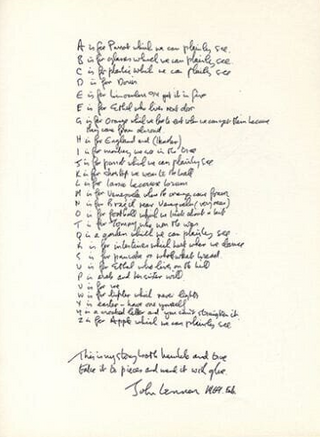 A is for Parrot which we can plainly see
B is for glasses which we can plainly see
C is for plastic which we can plainly see
D is for Doris
E is for binoculars I'll get it in five
F is for Ethel who lives next door
G is for orange which we love to eat when we can get them because
they come from abroad
H is for England and (Heather)
I is for monkey we see in the tree
J is for parrot which we can plainly see
K is for shoetop we wear to the ball
L is for Land because brown
M is for Venezuela where the oranges come from
N is for Brazil near Venezuela (very near)
O is for football which we kick about a bit
T is for Tommy who won the war
Q is a garden which we can plainly see
R is for intestines which hurt when we dance
S is for pancake or whole wheat bread
U is for Ethel who lives on the hill
P is arab and her sister will
V is for me
W is for lighter which never lights
X is easter - have one yourself
Y is a crooked letter and you can't straighten it
Z is for Apple which we can plainly see
This is my story both humble and true
take it to pieces and mend it with glue
John Lennon 1969. Feb.